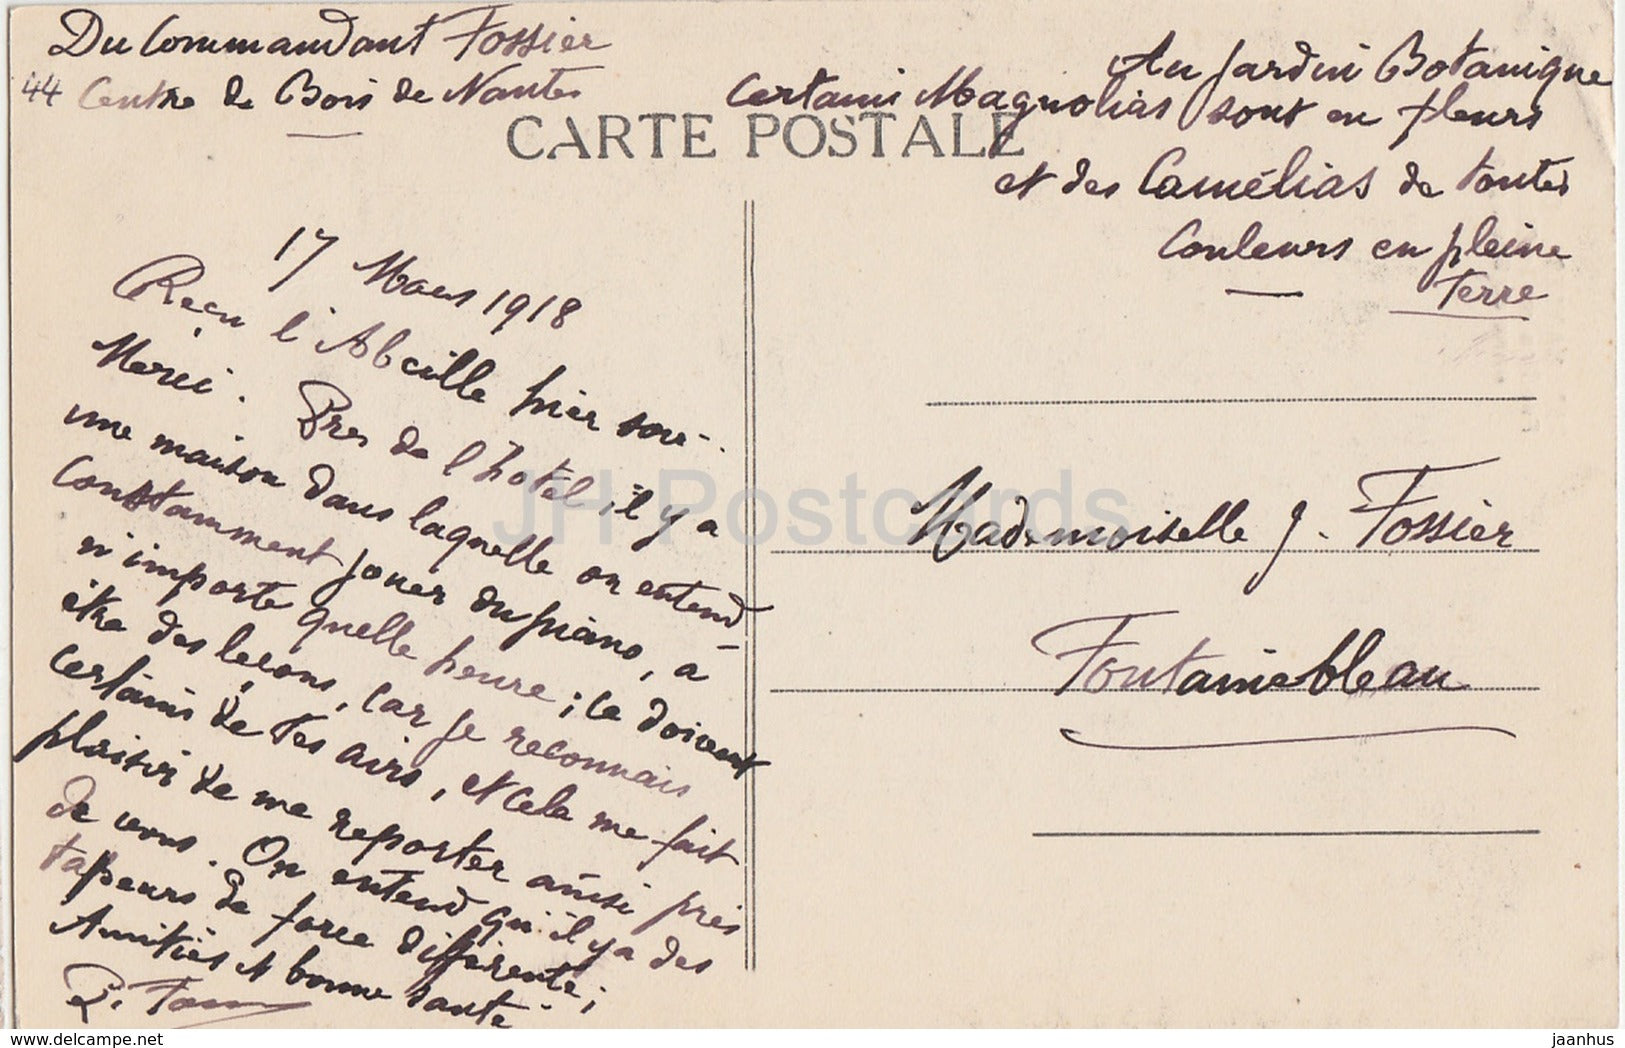 Du Commandant Fossier
44 Centre de Bois de Nantes
CARTE POSTALE
Au Jardin Botanique
certains Magnolias sont en fleurs
et des Camélias de toutes
Couleurs en pleine
Terre
17 Mars 1918
Reçu l'Abeille hier soir.
Merci. Près de l'hotel, il y a
une maison dans laquelle on entend
Constamment jouer du piano, à
n'importe quelle heure ; ce doivent
être des leçons, car je reconnais
certains de tes airs, et cela me fait
plaisir de me reporter ainsi près
de vous. On entend qu'il y a des
tapeurs de force différente ;
Amitiés et bonne santé
Mademoiselle J. Fossier
Fontainebleau
JH Postcards
jaanhus on www.delcampe.net